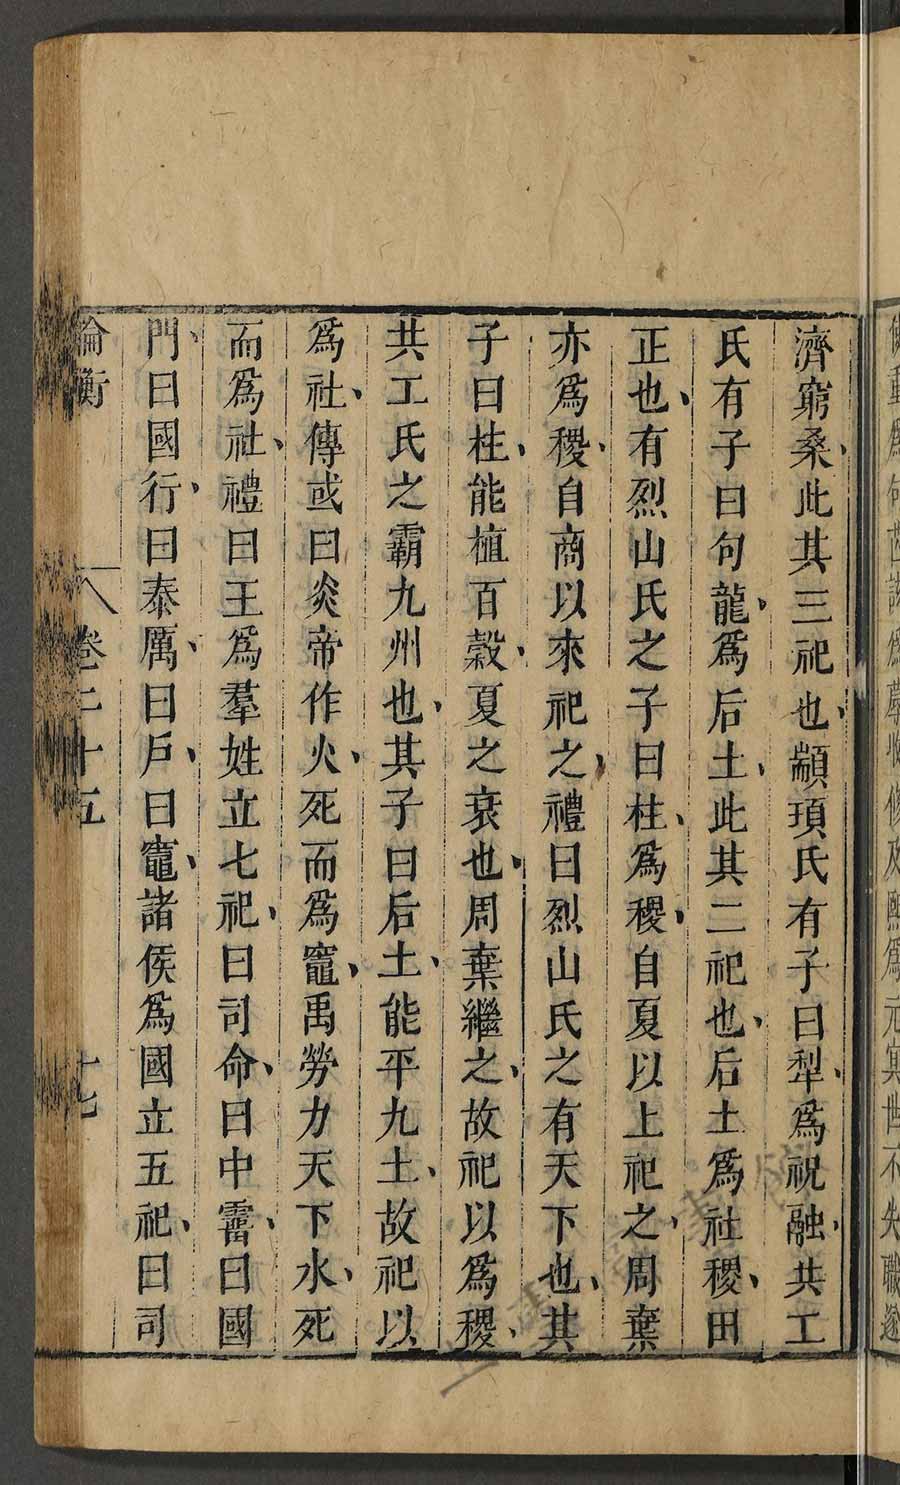 爲句芒該爲蓐收修及熙爲元冥世不失職遂
濟窮桑、此其三祀也、顓頊氏有子曰犁、爲祝融、共工
氏有子曰句龍、爲后土、此其二祀也、后土爲社稷、田
正也、有烈山氏之子曰柱、爲稷、自夏以上祀之、周棄
亦爲稷、自商以來祀之、禮曰烈山氏之有天下也、其
子曰柱、能植百穀、夏之衰也、周棄繼之、故祀以爲稷、
共工氏之霸九州也、其子曰后土、能平九土、故祀以
爲社、傳或曰炎帝作火、死而爲竈、禹勞力天下水、死
而爲社、禮曰王爲羣姓立七祀、曰司命、曰中霤、曰國
門、曰國行、曰泰厲、曰戶、曰竈、諸侯爲國立五祀、曰司
論衡 卷二十五 十七